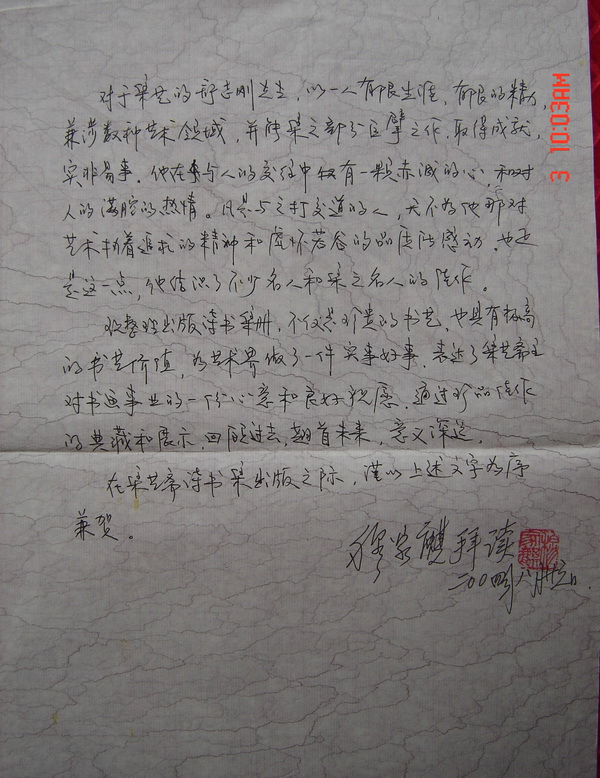 对于集艺的舒志刚先生,以一人有限生涯,有限的精力,
兼涉数种艺术领域,并能集之部分巨擘之作,取得成就,
实非易事。他在与人的交往中仅有一颗赤诚的心,和对
人的满腔的热情。凡是与之打交道的人,无不为他那对
艺术执着追求的精神和虚怀若谷的品质所感动,也正
是这一点,他结识了不少名人和集之名人的佳作。
收整理出版诗书集册,不仅是珍贵的书艺,也具有极高
的书艺价值,为艺术界做了一件实事好事,表达了集艺斋主
对书画事业的一个心意和良好祝愿。通过珍品佳作
的典藏和展示,回顾过去,翘首未来,意义深远。
在集艺斋诗书集出版之际,谨以上述文字为序
兼贺。
家麒拜读
二〇〇四年八月
3 10:03AM